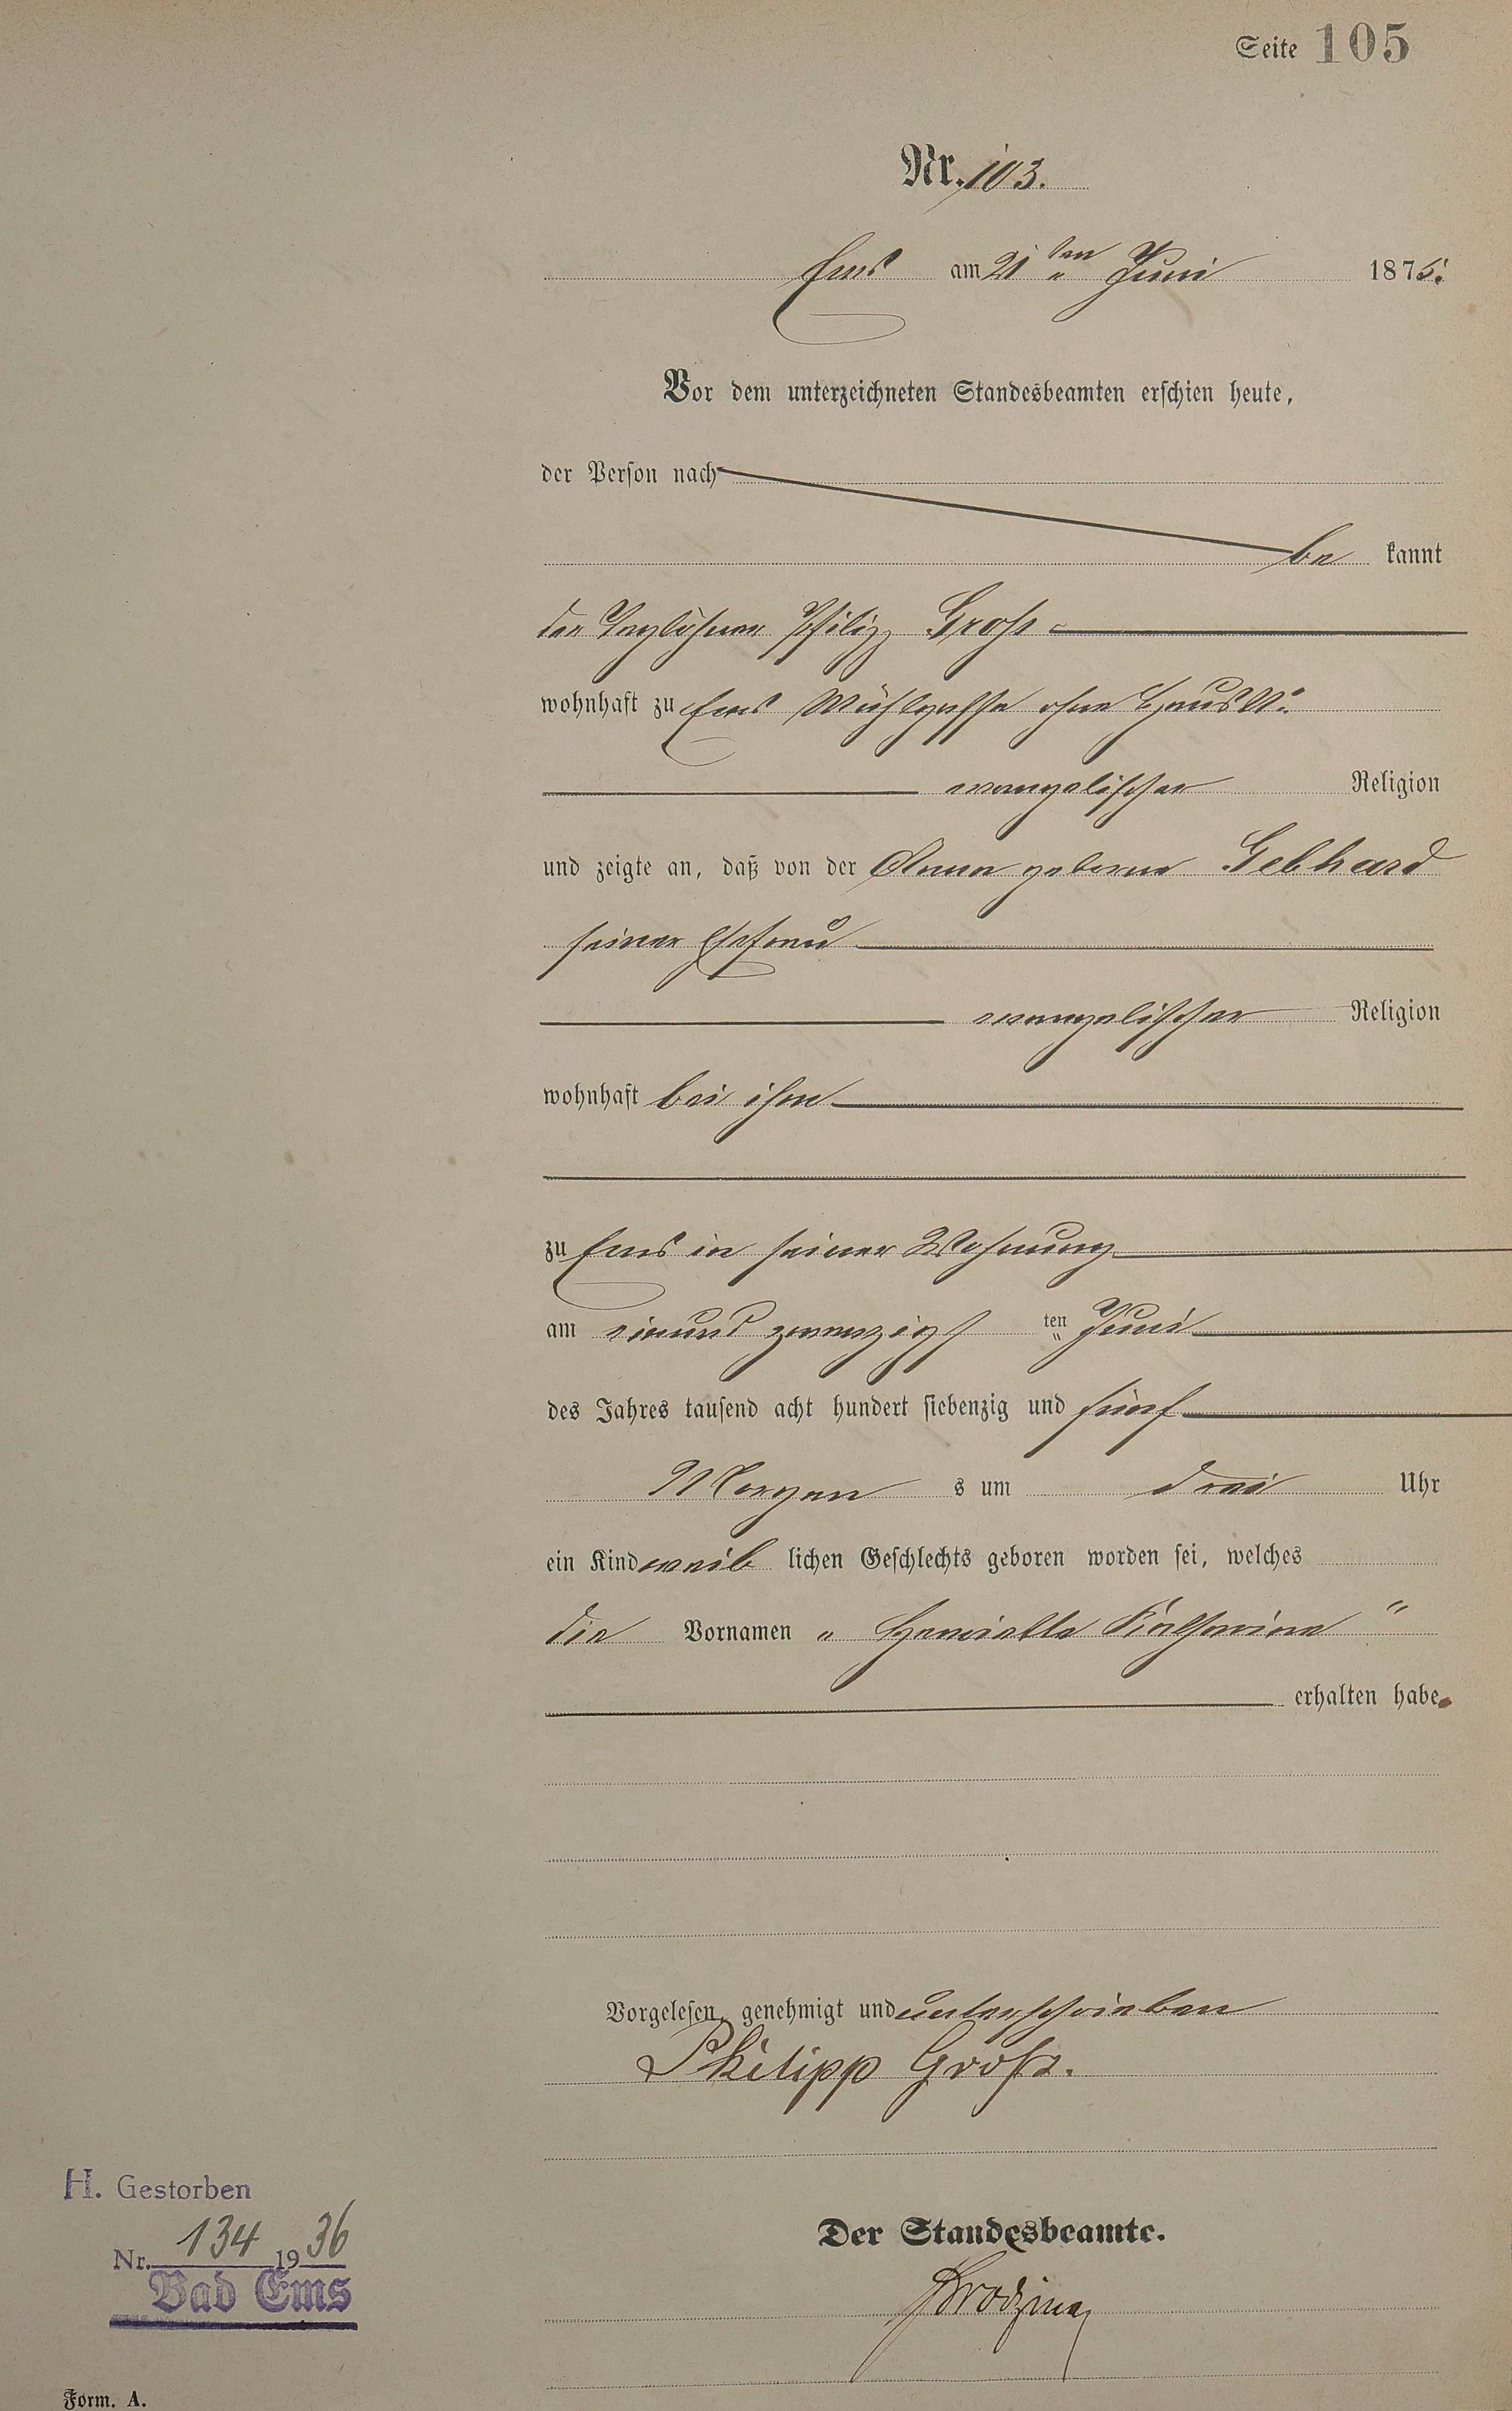 Seite 105
Nr. 103.
Ems am 21ten Juni 1875.
Vor dem unterzeichneten Standesbeamten erschien heute,
der Person nach
be kannt
der Taglöhner Philipp Groß
wohnhaft zu Ems Mühlgasse ohne Haus No
evangelischer Religion
und zeigte an, daß von der Anna geborne Gebhard
seiner Ehefrau
evangelischer Religion
wohnhaft bei ihm
zu Ems in seiner Wohnung
am einund zwanzigst ten Juni
des Jahres tausend acht hundert siebenzig und fünf
Morgen s um drei Uhr
ein Kind weib lichen Geschlechts geboren worden sei, welches
die Vornamen „ Henriette Katharine "
erhalten habe.
Vorgelesen, genehmigt und unterschrieben
Philipp Groß.
H. Gestorben
Nr. 134 1936
Bad Ems
Der Standesbeamte.
Form. A.